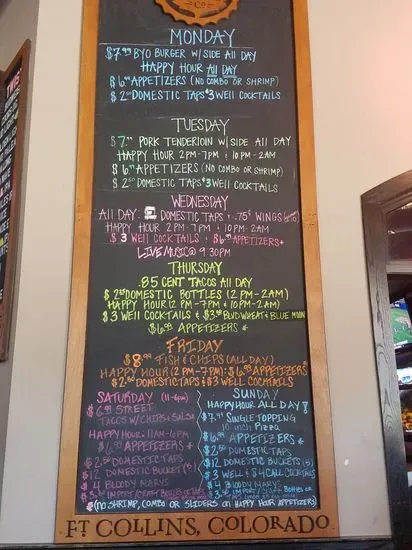 CO
MONDAY
$7.99 BYO BURGER W/SIDE ALL DAY
HAPPY HOUR ALL DAY
$6.99 APPETIZERS (NO COMBO OR SHRIMP)
$2.50 DOMESTIC TAPS $3 WELL COCKTAILS
TUESDAY
$7.99 PORK TENDERLOIN W/SIDE ALL DAY
HAPPY HOUR 2PM-7PM & 10PM-2AM
$6.99 APPETIZERS (NO COMBO OR SHRIMP)
$2.50 DOMESTIC TAPS $3 WELL COCKTAILS
WEDNESDAY
ALL DAY: DOMESTIC TAPS & .75¢ WINGS
HAPPY HOUR 2PM-7PM & 10PM-2AM
$3 WELL COCKTAILS & $6.99 APPETIZERS*
LIVE MUSIC @ 9:30PM
THURSDAY
.85 CENT TACOS ALL DAY
$2.50 DOMESTIC BOTTLES (2PM-2AM)
HAPPY HOUR (2PM-7PM & 10PM-2AM)
$3 WELL COCKTAILS & $3.50 BLVD WHEAT & BLUE MOON
$6.99 APPETIZERS *
FRIDAY
$8.99 FISH & CHIPS (ALL DAY)
HAPPY HOUR (2PM-7PM): $6.99 APPETIZERS*
$2.50 DOMESTIC TAPS & $3 WELL COCKTAILS
SATURDAY (11-6PM)
$6.99 STREET
TACOS W/CHIPS & SALSA
HAPPY HOUR: 11AM-6PM
$6.99 APPETIZERS *
$2.50 DOMESTIC TAPS
$12 DOMESTIC BUCKET (5)
$4 BLOODY MARYS
$3.50 IMPORT/CRAFT BOTTLES OR TAPS
SUNDAY
HAPPY HOUR ALL DAY!
$7.99 SINGLE TOPPING
10 inch Pizza
$6.99 APPETIZERS *
$2.50 DOMESTIC TAPS
$12 DOMESTIC BUCKETS (5)
$3 WELL & $4 CALL COCKTAILS
$4 BLOODY MARYS
$3.50 IMPORT/CRAFT BOTTLES OR
*(NO SHRIMP, COMBO OR SLIDERS ON HAPPY HOUR APPETIZERS)
FT. COLLINS, COLORADO